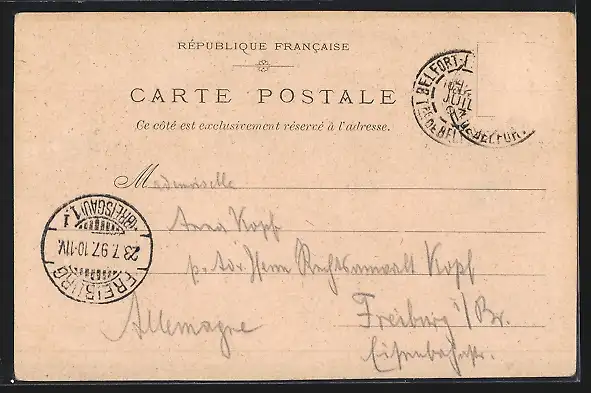 RÉPUBLIQUE FRANÇAISE
CARTE POSTALE
Ce côté est exclusivement réservé à l'adresse.
BELFORT
JUIL
BELFORT
Mademoiselle
Anna Kopf
p. Adr. Herrn Rechtsanwalt Kopf
Freiburg i/Br.
Eisenbahnstr.
Allemagne
FREIBURG
23.7.97.10-11V.
(BREISGAU) 1